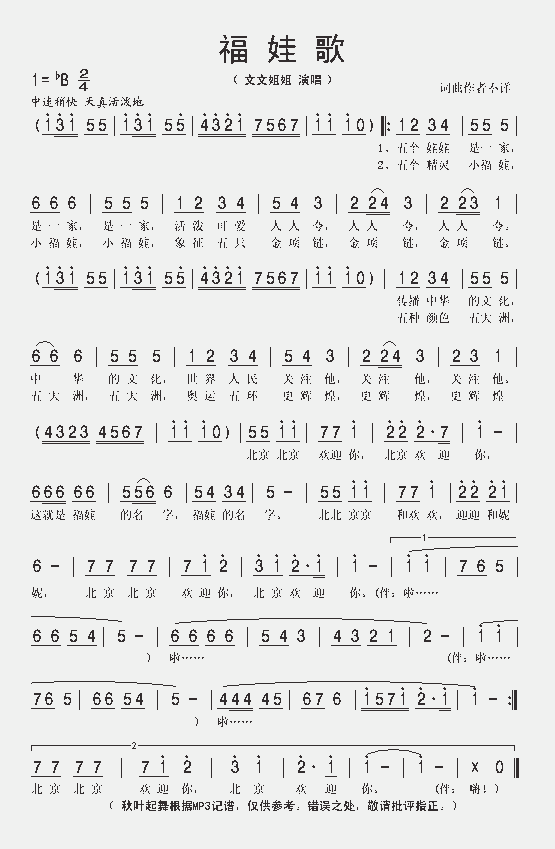 福 娃 歌
1=♭B 2/4
（ 文文姐姐 演唱 ）
词曲作者不详
中速稍快 天真活泼地
(i3i 55 | i3i 55 | 4321 7567 | i i i0) ‖: 12 34 | 55 5 |
1、五个 娃娃 是一 家，
2、五个 精灵 小福 娃，
6 6 6 | 5 5 5 | 1 2 3 4 | 5 4 3 | 2 24 3 | 2 23 1 |
是 一 家， 是 一 家， 活 泼 可 爱 人 人 夸， 人 人 夸， 人 人 夸。
小 福 娃， 小 福 娃， 象 征 五 只 金 项 链， 金 项 链， 金 项 链。
(i3i 55 | i3i 55 | i3i 55 | 4321 7567 | i i i0) | 12 34 | 55 5 |
传播 中华 的文 化，
五种 颜色 五大 洲，
6 6 6 | 5 5 5 | 1 2 3 4 | 5 4 3 | 2 24 3 | 2 3 1 |
中 华 的 文 化， 世 界 人 民 关 注 他， 关 注 他， 关 注 他。
五 大 洲， 五 大 洲， 奥 运 五 环 更 辉 煌， 更 辉 煌， 更 辉 煌。
(4323 4567 | i i i0) | 55 i i | 77 i | 22 2·7 | i - |
北京 北京 欢迎 你， 北京 欢 迎 你，
666 66 | 556 6 | 54 34 | 5 - | 55 i i | 77 i | 22 2i |
这就是 福娃 的名 字， 福娃 的名 字。 北北 京京 和欢 欢， 迎迎 和妮
1
6 - | 7 7 7 7 | 7 i 2 | 3 i 2·i | i - | i i | 7 6 5 |
妮， 北 京 北 京 欢 迎 你， 北 京 欢 迎 你。（伴：啦……
6 6 5 4 | 5 - | 6 6 6 6 | 5 4 3 | 4 3 2 1 | 2 - | i i |
） 啦…… （伴：啦……
76 5 | 66 54 | 5 - | 444 45 | 67 6 | i57i 2·i | i - :‖
） 啦……
2
7 7 7 7 | 7 i 2 | 3 i | 2·i | i - | i - | x 0 ‖
北 京 北 京 欢 迎 你， 北 京 欢 迎 你。 （伴： 嗨！）
（ 秋叶起舞根据MP3记谱，仅供参考。错误之处，敬请批评指正。）